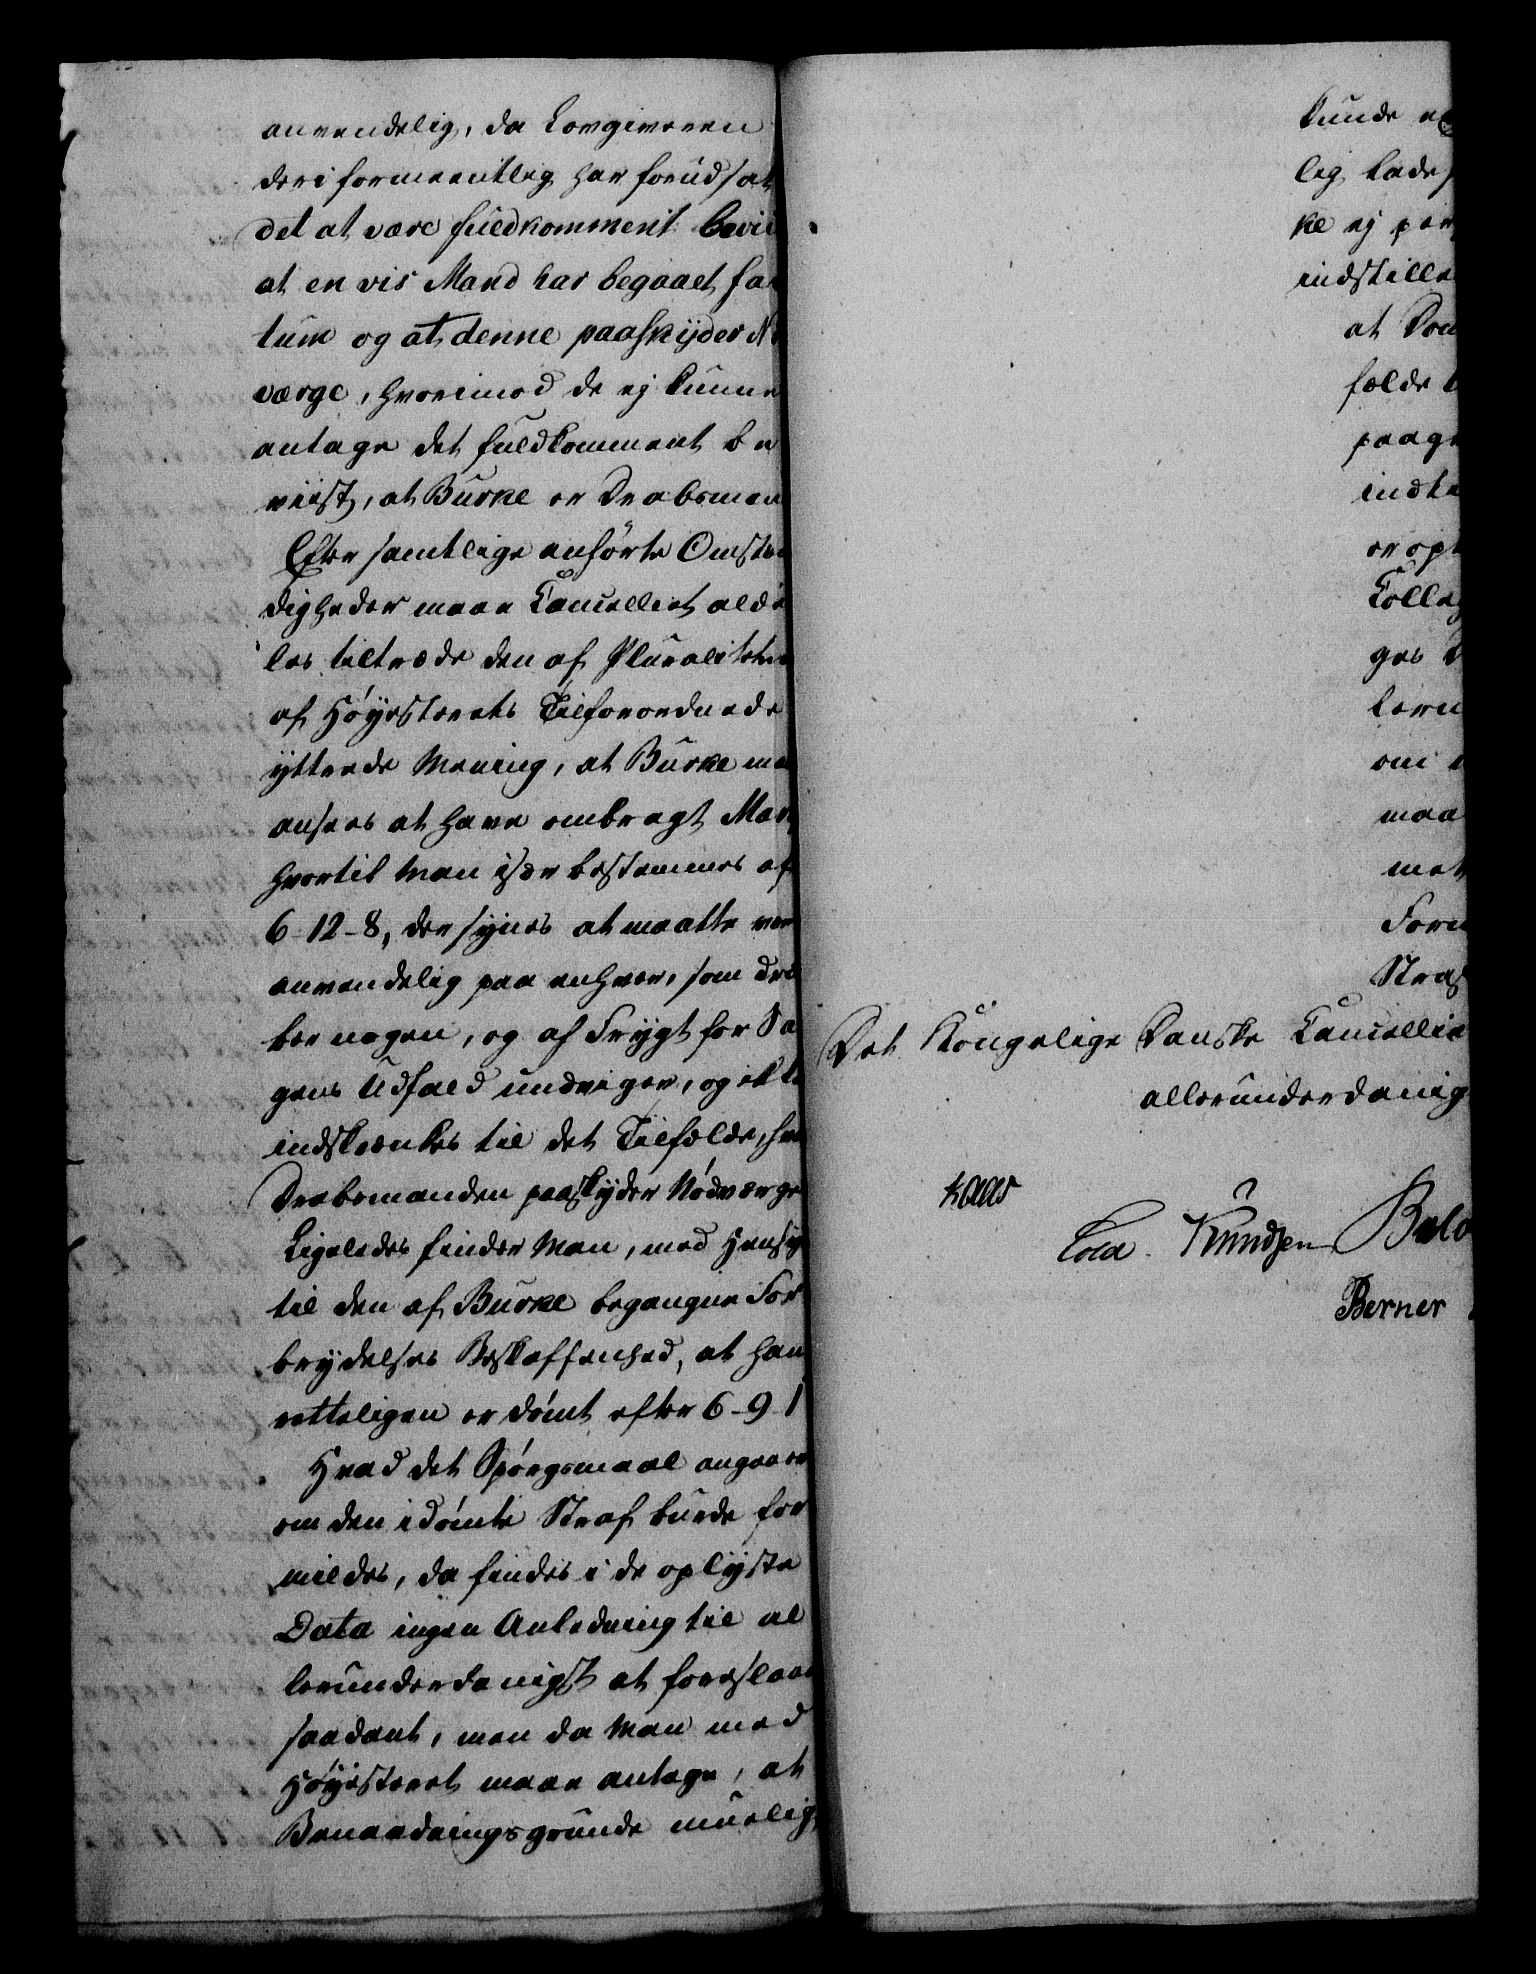 anvendelig, da Lovgiveren
deri formeentlig har forudsat
det at være fuldkomment beviis
at en vis Mand har begaaet fac
tum og at denne paaskyder N
værge, hvorimod de ej kunne
antage det fuldkomment be
viist, at Burke er Drabsman
Efter samtlige anførte Omstæn
digheder maae Cancelliet alde
les tiltræde den af Pluraliteten
af Høyesterets Tilforordnede
yttrede Mening, at Burke maa
ansees at have ombragt Mar
hvortil man især bestemmes af
6-12-8, der synes at maatte vær
anvendelig paa enhver, som dræ
ber nogen, og af Frygt for Sa
gens Udfald undviger, og ikke
indskrænkes til det Tilfælde, hvor
Drabsmanden paaskyder Nødværge
Ligeledes finder Man, med Hensyn
til den af Burke begangne For
brydelses Beskaffenhed, at han
retteligen er dømt efter 6-9-1
Hvad det Spørgsmaal angaaer
om den idømte Straf burde for
mildes, da findes i de oplyste
Data ingen Anledning til al
lerunderdanigst at foreslaae
saadant, men da Man med
Høyesteret maae antage, at
Benaadningsgrunde muelig
kunde
lig lade
ke ej
indstille
at
fælde
paag
indt
er op
Colleg
ges
lern
om
maa
met
Foru
Straf
Det Kongelige Danske Cancellie
allerunderdanig
Kaas
Cold Knudsen
Berner